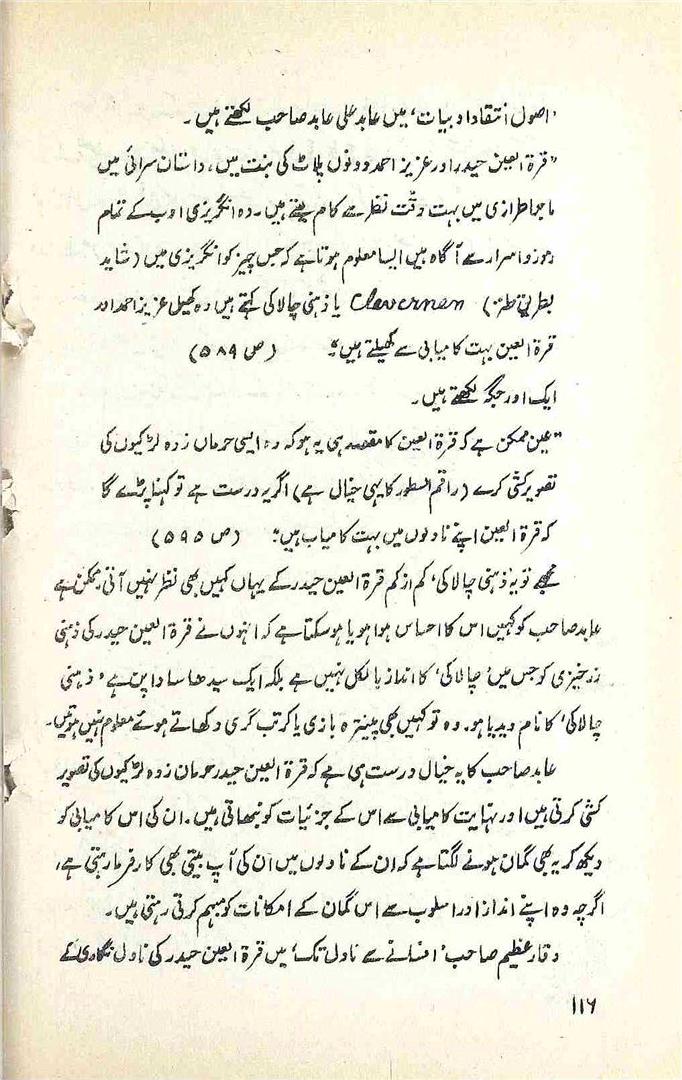 'اصول انتقاد ادبیات' میں عابد علی عابد صاحب لکھتے ہیں۔
"قرۃ العین حیدر اور عزیز احمد دونوں پلاٹ کی بنت میں، داستان سرائی میں
ماجرا طرازی میں بہت دقّت نظر سے کام لیتے ہیں۔ وہ انگریزی ادب کے تمام
رموز و اسرار سے آگاہ ہیں ایسا معلوم ہوتا ہے کہ جس چیز کو انگریزی میں (شاید
بطریق طنز) Clevernen یا ذہنی چالاکی کہتے ہیں وہ کھیل عزیز احمد اور
قرۃ العین بہت کامیابی سے کھیلتے ہیں" (ص ۵۸۹)
ایک اور جگہ لکھتے ہیں۔
"عین ممکن ہے کہ قرۃ العین کا مقصد ہی یہ ہو کہ وہ ایسی حرماں زدہ لڑکیوں کی
تصویر کشی کرے (راقم السطور کا یہی خیال ہے) اگر یہ درست ہے تو کہنا پڑے گا
کہ قرۃ العین اپنے ناولوں میں بہت کامیاب ہیں" (ص ۵۹۵)
مجھے تو یہ 'ذہنی چالاکی' کم از کم قرۃ العین حیدر کے یہاں کہیں بھی نظر نہیں آتی، ممکن ہے
عابد صاحب کو کہیں اس کا احساس ہوا ہو یا ہو سکتا ہے کہ انہوں نے قرۃ العین حیدر کی ذہنی
زرخیزی کو جس میں 'چالاکی' کا انداز بالکل نہیں ہے بلکہ ایک سیدھا سادا پن ہے 'ذہنی
چالاکی' کا نام دیدیا ہو۔ وہ تو کہیں بھی پینترہ بازی یا کرتب گری دکھاتے ہوئے معلوم نہیں ہوتیں۔
عابد صاحب کا یہ خیال درست ہی ہے کہ قرۃ العین حیدر حرماں زدہ لڑکیوں کی تصویر
کشی کرتی ہیں اور نہایت کامیابی سے اس کے جزئیات کو نبھاتی ہیں۔ ان کی اس کامیابی کو
دیکھ کر یہ بھی گمان ہونے لگتا ہے کہ ان کے ناولوں میں ان کی آپ بیتی بھی کارفرما رہتی ہے،
اگرچہ وہ اپنے انداز اور اسلوب سے اس گمان کے امکانات کو مبہم کرتی رہتی ہیں۔
وقار عظیم صاحب 'افسانے سے ناول تک' میں قرۃ العین حیدر کی ناول نگاری کے
۱۱۶